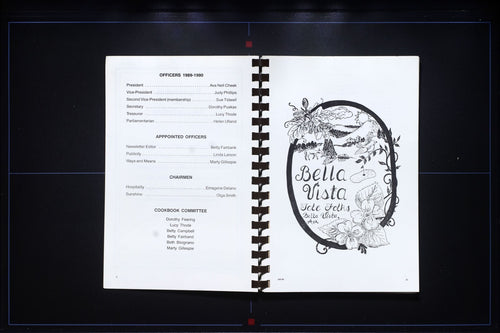 OFFICERS 1989-1990
President Ava Nell Cheek
Vice-President Judy Phillips
Second Vice-President (membership) Sue Tidwell
Secretary Dorothy Puskas
Treasurer Lucy Throte
Parliamentarian Helen Ufland
APPPOINTED OFFICERS
Newsletter Editor Betty Fairbank
Publicity Linda Larson
Ways and Means Marty Gillespie
CHAIRMEN
Hospitality
Sunshine Olga Smith
COOKBOOK COMMITTEE
Dorothy Fearing
Lucy Throte
Betty Campbell
Betty Fairband
Beth Biognano
Marty Gillespie
Bella
Vista
Tole Folks
Bella Vista,
Ark